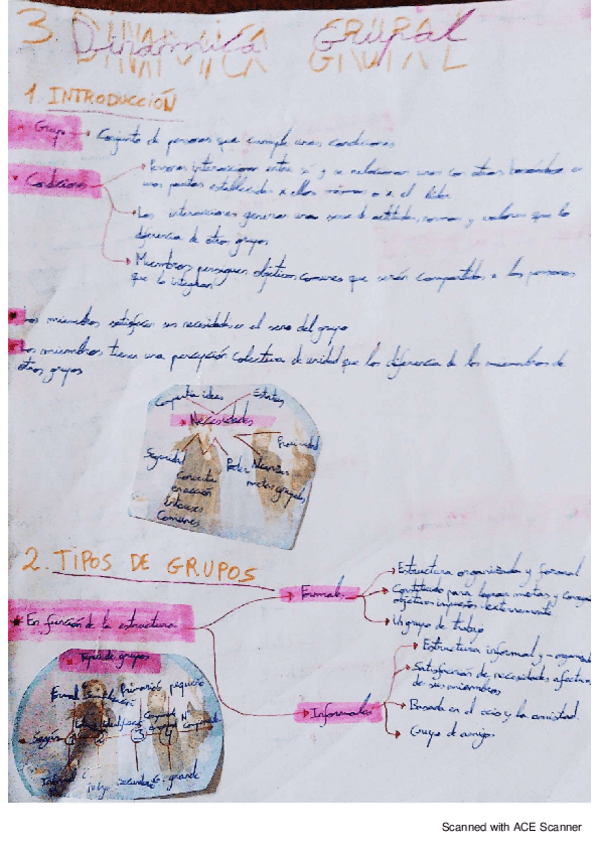 3. Dinámica Grupal
1. INTRODUCCIÓN
Grupo → Conjunto de personas que cumple unas condiciones
Condiciones → Personas interaccionan entre sí y se relacionan unas con otras basándose en
unas pautas establecidas x ellos mismos o x el líder
Las interacciones generan una serie de actitudes, normas y valores que lo
diferencia de otros grupos
Miembros persiguen objetivos comunes que serán compartidos a las personas
que lo integran
Los miembros satisfacen sus necesidades en el seno del grupo
Los miembros tienen una percepción colectiva de unidad que los diferencia de los miembros de
otros grupos
Compartir ideas Estatus
Necesidades
Proximidad
Seguridad
Poder Alcanzar
metas grupales
Intereses
Comunes
2. TIPOS DE GRUPOS
En función de la estructura
Formal
Estructura organizada y formal
Constituido para lograr metas y
objetivos
Un grupo de trabajo
Informales
Estructura informal y
Satisfacción de necesidades
de sus miembros
Basada en el ocio y la amistad.
Grupo de amigos
Tipos de grupos
Primarios pequeño
Según 1 2 3 4
secundario grande
Scanned with ACE Scanner